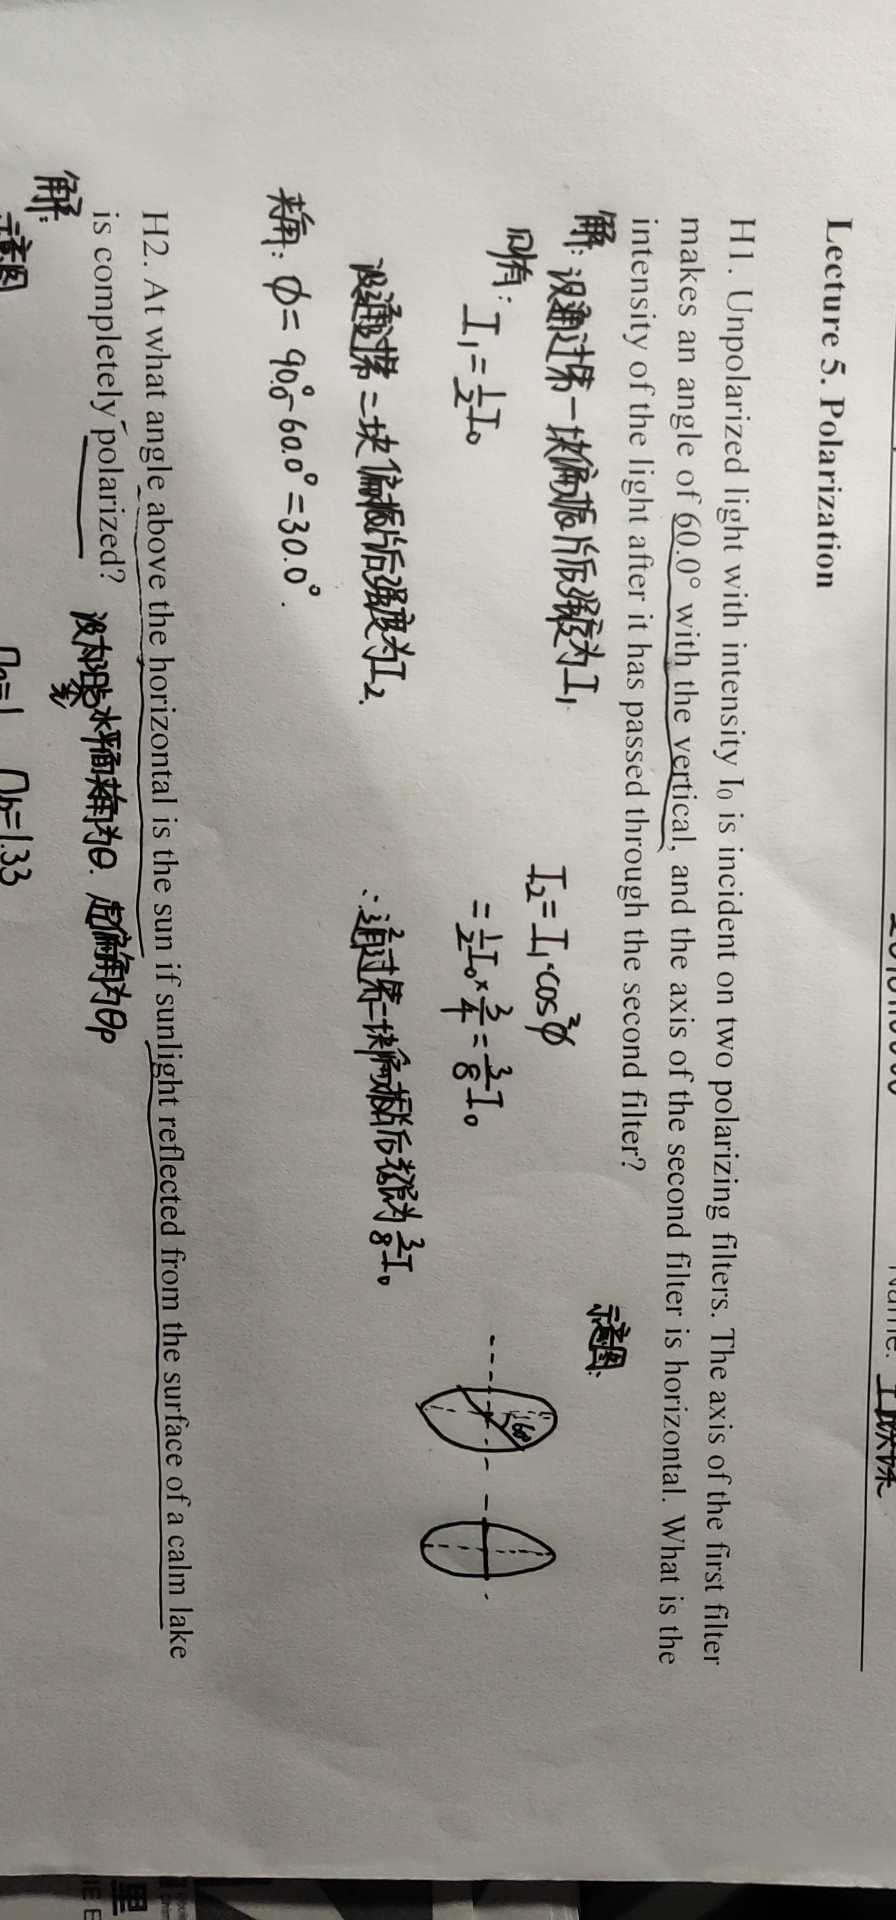 Name: 
Lecture 5. Polarization
H1. Unpolarized light with intensity I₀ is incident on two polarizing filters. The axis of the first filter
makes an angle of 60.0° with the vertical, and the axis of the second filter is horizontal. What is the
intensity of the light after it has passed through the second filter?
解: 设通过第一块偏振片后强度为I₁
则有:
I₁=½I₀
设通过第二块偏振片后强度为I₂.
夹角: ϕ= 90.0°-60.0°=30.0°.
I₂=I₁·cos²ϕ
=½I₀×¾=⅜I₀
∴通过第二块偏振片后光强为⅜I₀
示意图:
60°
H2. At what angle above the horizontal is the sun if sunlight reflected from the surface of a calm lake
is completely polarized?
设太阳光与水平面夹角为θ. 起偏角为θp
解:
示意图
na=1 nb=1.33
里
IE E